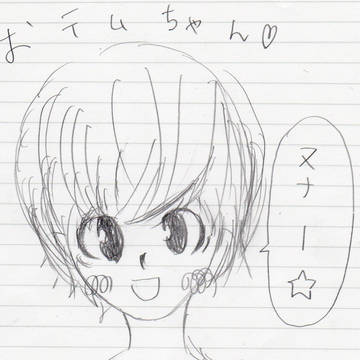 おテムちゃん♡
ヌナー☆